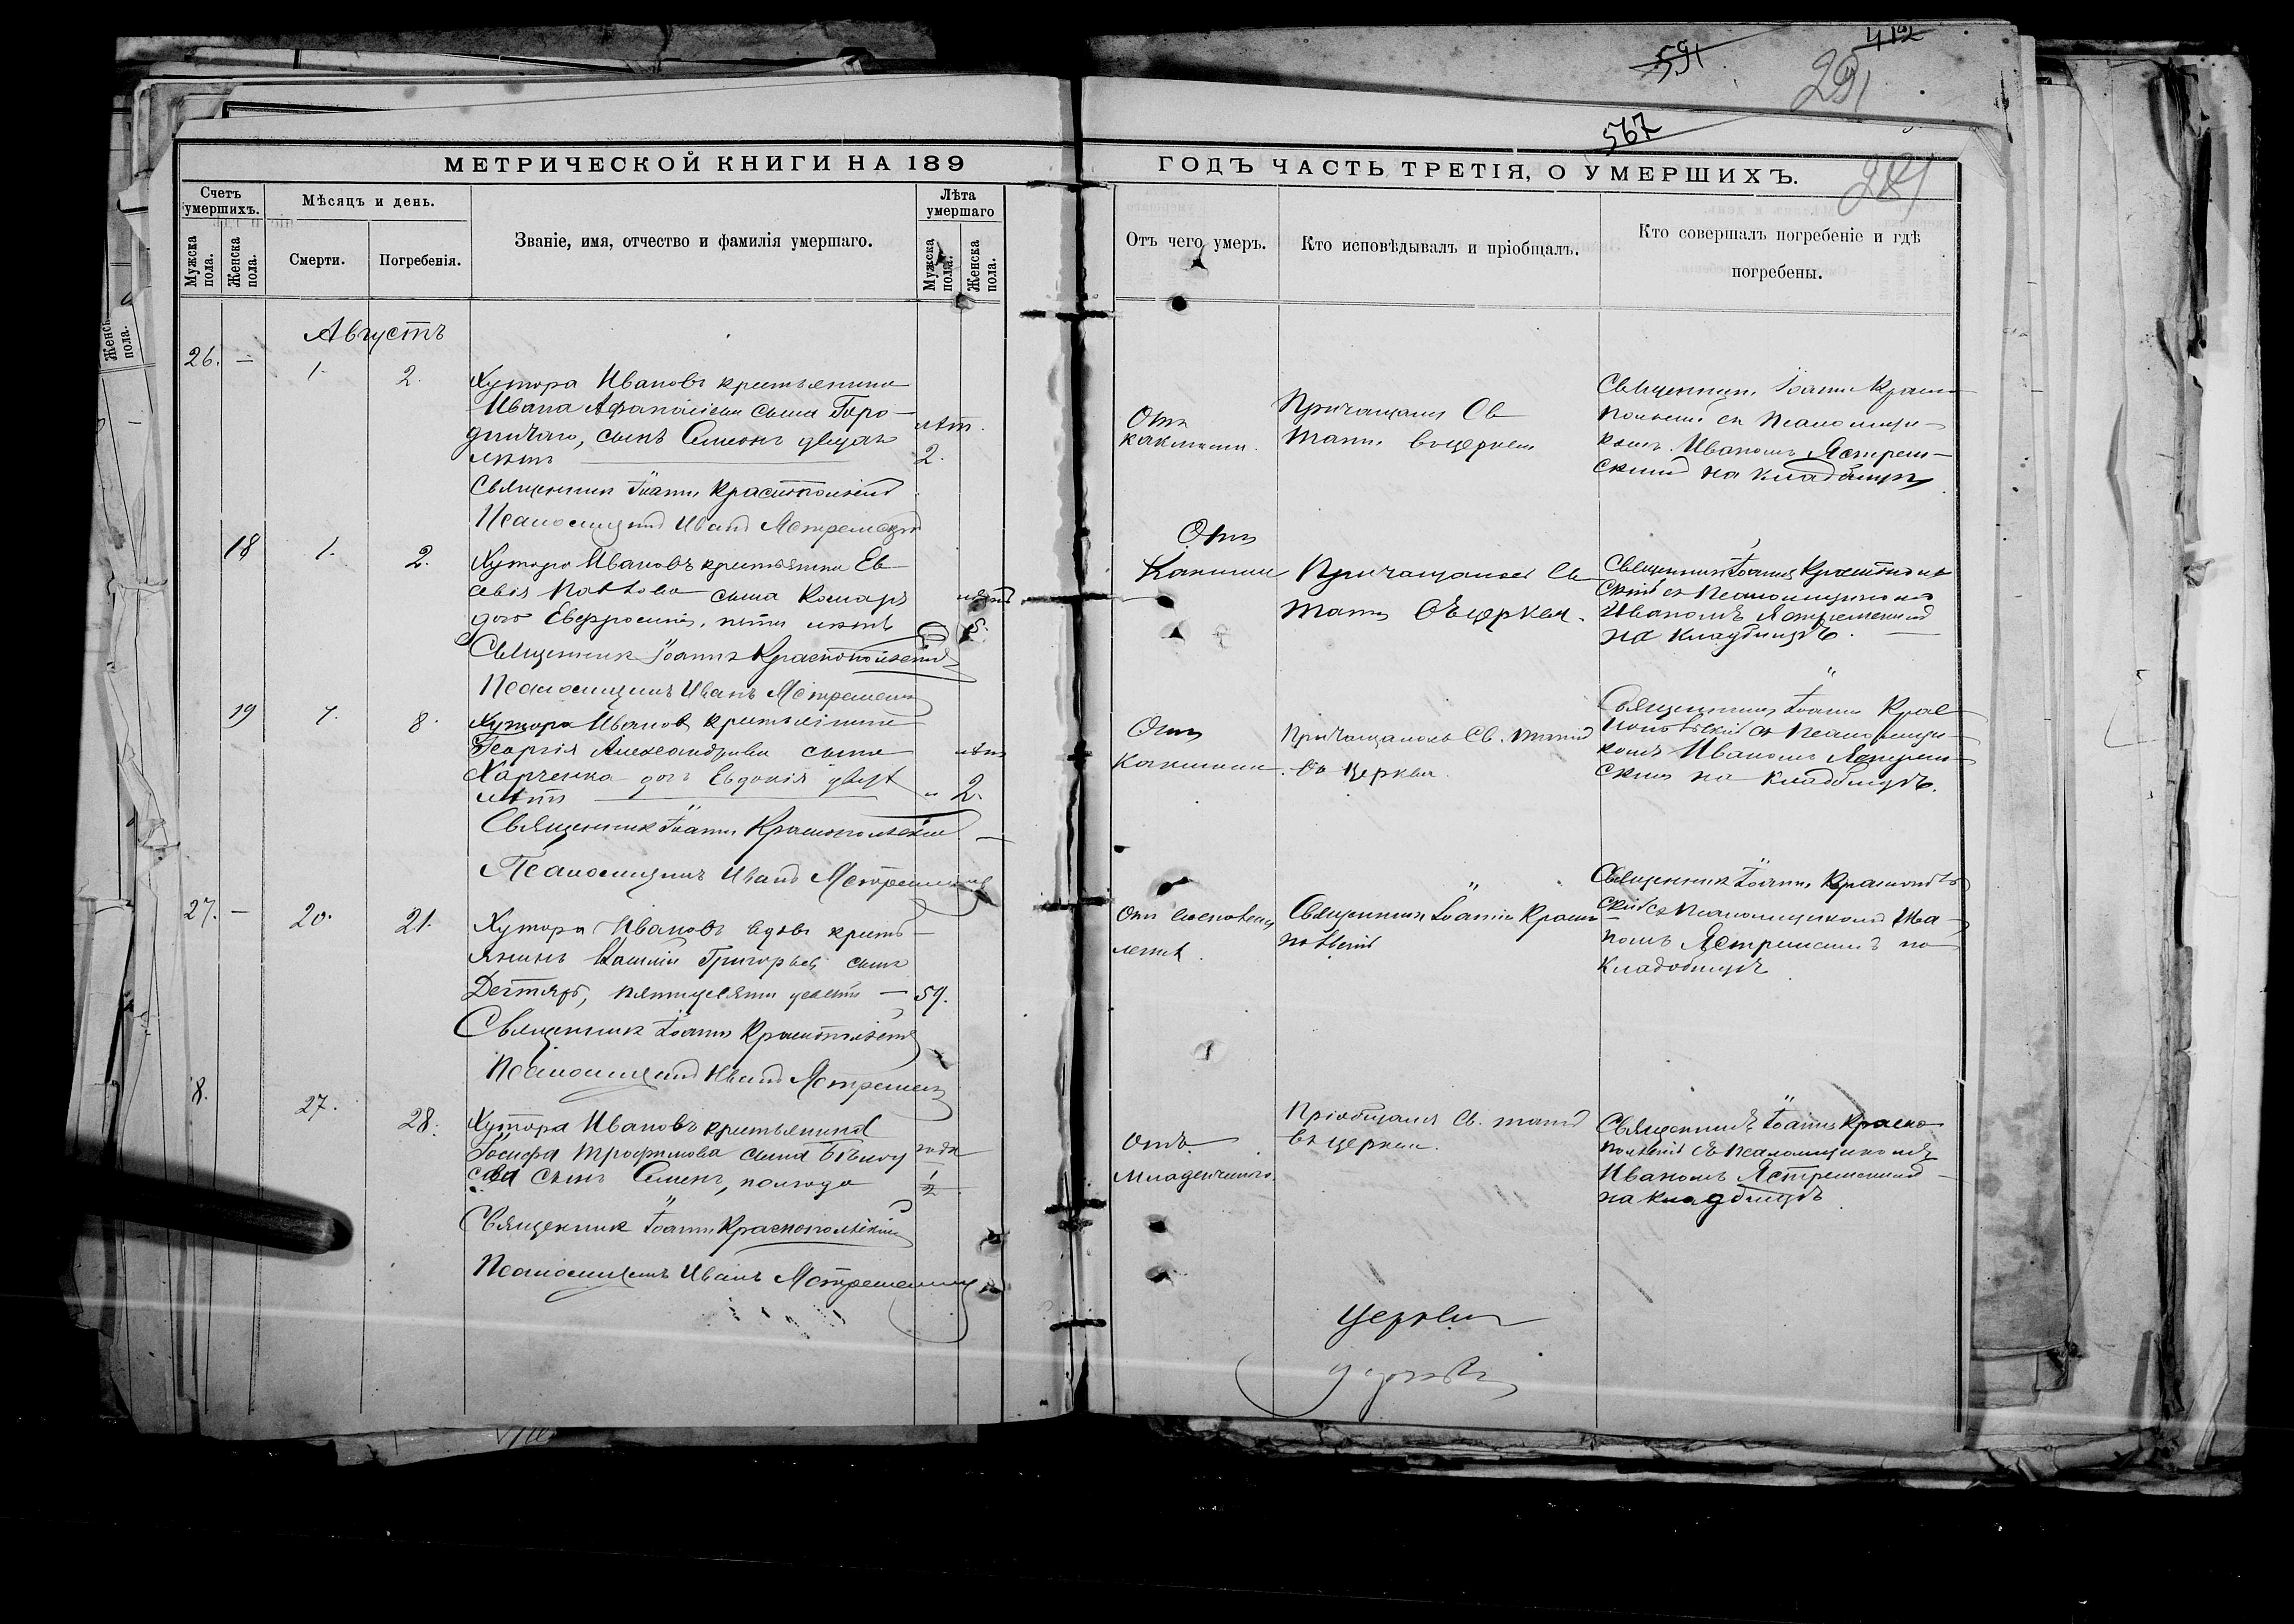 412
591
291
567
281
МЕТРИЧЕСКОЙ КНИГИ НА 189
Счетъ умершихъ.
Мѣсяцъ и день.
Званіе, имя, отчество и фамилія умершаго.
Лѣта умершаго
Мужска пола.
Женска пола.
Смерти.
Погребенія.
Мужска пола.
Женска пола.
Августъ
26. — 1. 2.
Хутора Ивановъ крестьянина
Ивана Афанасіева сына Горо-
дничаго, сынъ Симеонъ двухъ
лѣтъ
лѣт.
2.
Священникъ Іоаннъ Краснопольскій
Псаломщикъ Иванъ Ястремскій
18 1. 2.
Хутора Ивановъ крестьянина Ев
севія Павлова сына Комаръ
дочь Евфросинія, пяти лѣтъ
лѣтъ
5.
Священникъ Іоаннъ Краснопольскій
Псаломщикъ Иванъ Ястремскій
19 7. 8.
Хутора Ивановъ крестьянина
Георгія Александрова сына
Харченка дочь Евдокія двухъ
лѣтъ
лѣтъ
" 2.
Священникъ Іоаннъ Краснопольскій
Псаломщикъ Иванъ Ястремскій
27. — 20. 21.
Хутора Ивановъ вдовъ кресть-
янинъ Григорьевъ сынъ
Дегтярь, пятидесяти девяти — 59.
Священникъ Іоаннъ Краснопольскій
Псаломщикъ Иванъ Ястремскій
8. 27. 28.
Хутора Ивановъ крестьянина
Іосифа Трофимова сына
сынъ Семенъ, полгода
года
1/2
Священникъ Іоаннъ Краснопольскій
Псаломщикъ Иванъ Ястремскій
ГОДЪ ЧАСТЬ ТРЕТІЯ, О УМЕРШИХЪ.
Отъ чего умеръ.
Кто исповѣдывалъ и пріобщалъ.
Кто совершалъ погребеніе и гдѣ погребены.
Отъ
коклюша.
Причащался Св
Таинъ въ церкви
Священникъ Іоаннъ Красно
польскій съ псаломщи-
комъ Иваномъ Ястрем-
скимъ на кладбищѣ
Отъ
Коклюша
Причащалась Св
Таинъ въ церкви.
Священникъ Іоаннъ Краснополь
скій съ Псаломщикомъ
Иваномъ Ястремскимъ
на кладбищѣ.
Отъ
Коклюша.
Причащалась Св. Таинъ
въ церкви.
Священникъ Іоаннъ Крас
нопольскій съ Псаломщи-
комъ Иваномъ Ястрем-
скимъ на кладбищѣ.
Отъ воспаленія
легкихъ.
Священникъ Іоаннъ Красно
польскій
Священникъ Іоаннъ Краснополь
скій съ Псаломщикомъ Ива-
номъ Ястремскимъ на
кладбищѣ.
Отъ
Младенческаго.
Пріобщался Св. таинъ
въ церкви.
Священникъ Іоаннъ Красно
польскій съ псаломщикомъ
Иваномъ Ястремскимъ
на кладбищѣ.